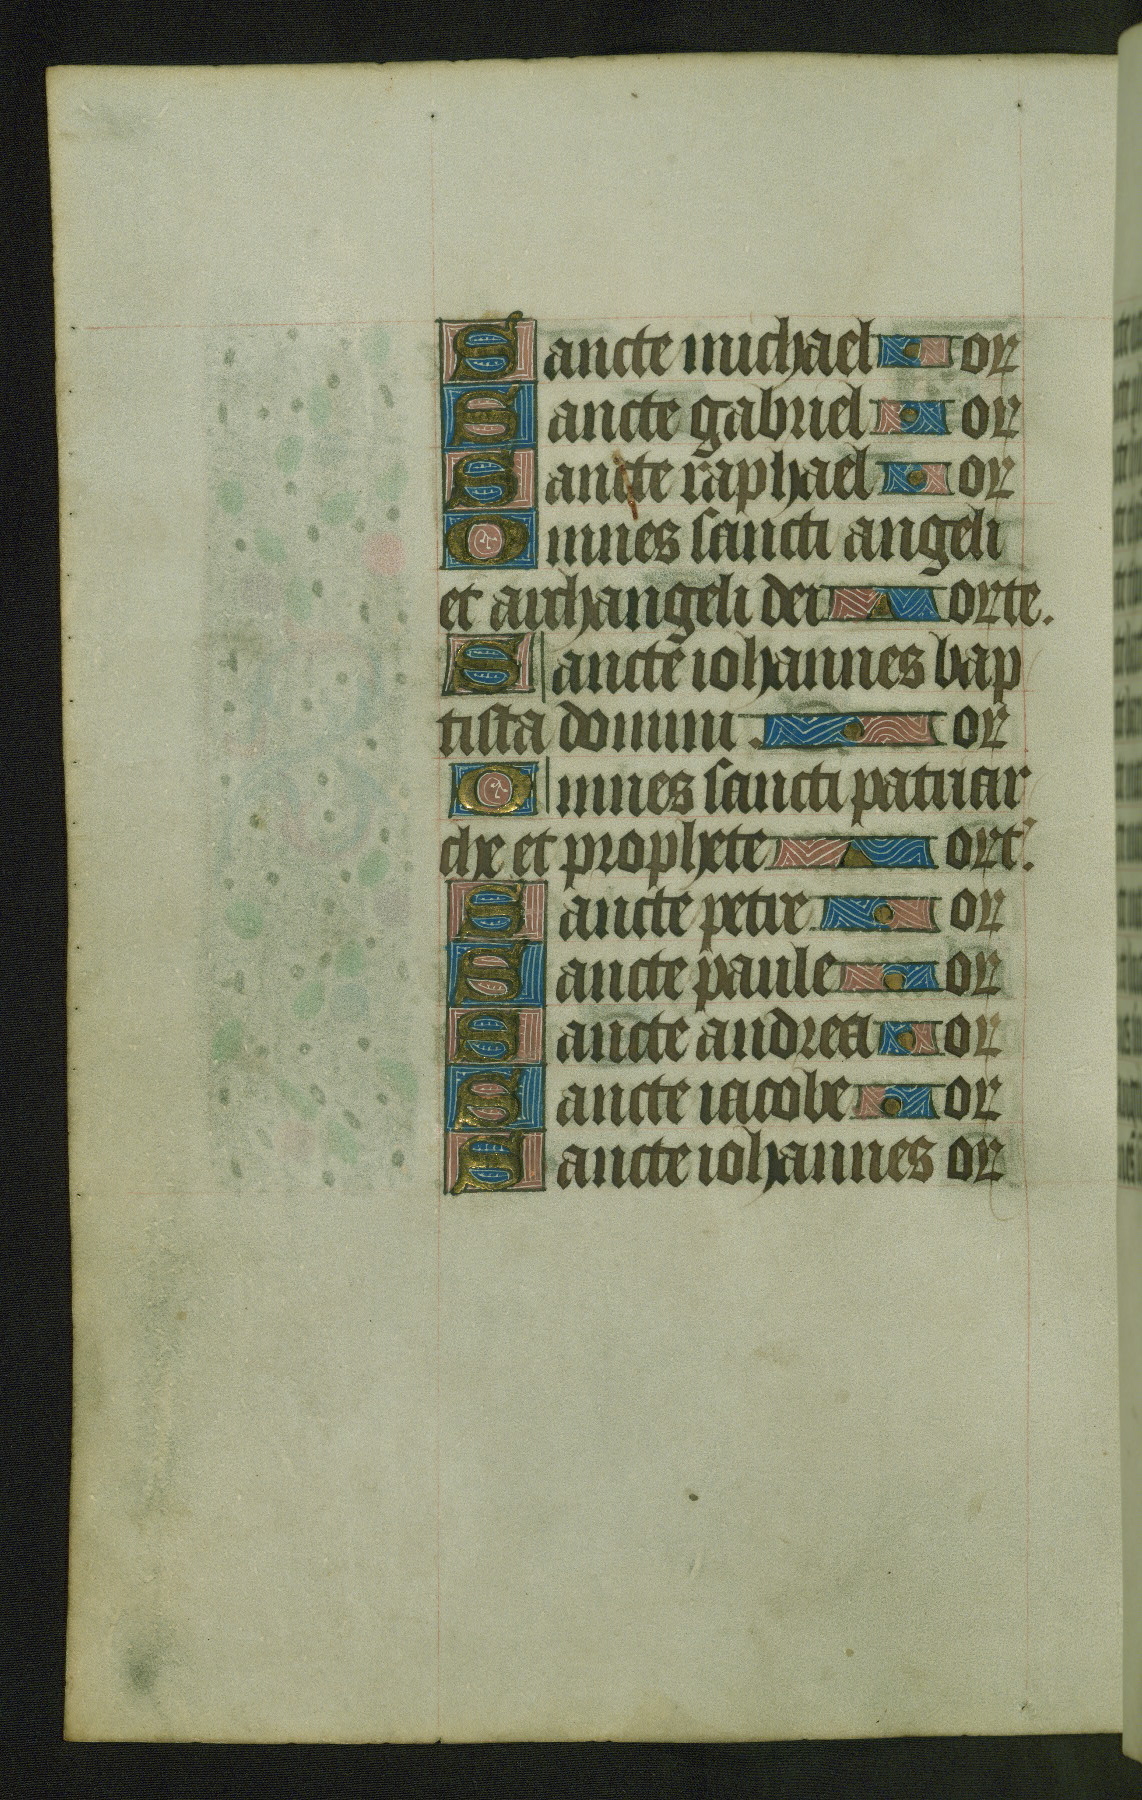 Sancte michael or
Sancte gabriel or
Sancte raphael or
Omnes sancti angeli
et archangeli dei orte.
Sancte iohannes bap
tista domini or
Omnes sancti patriar
che et prophete ort.
Sancte petre or
Sancte paule or
Sancte andrea or
Sancte iacobe or
Sancte iohannes or